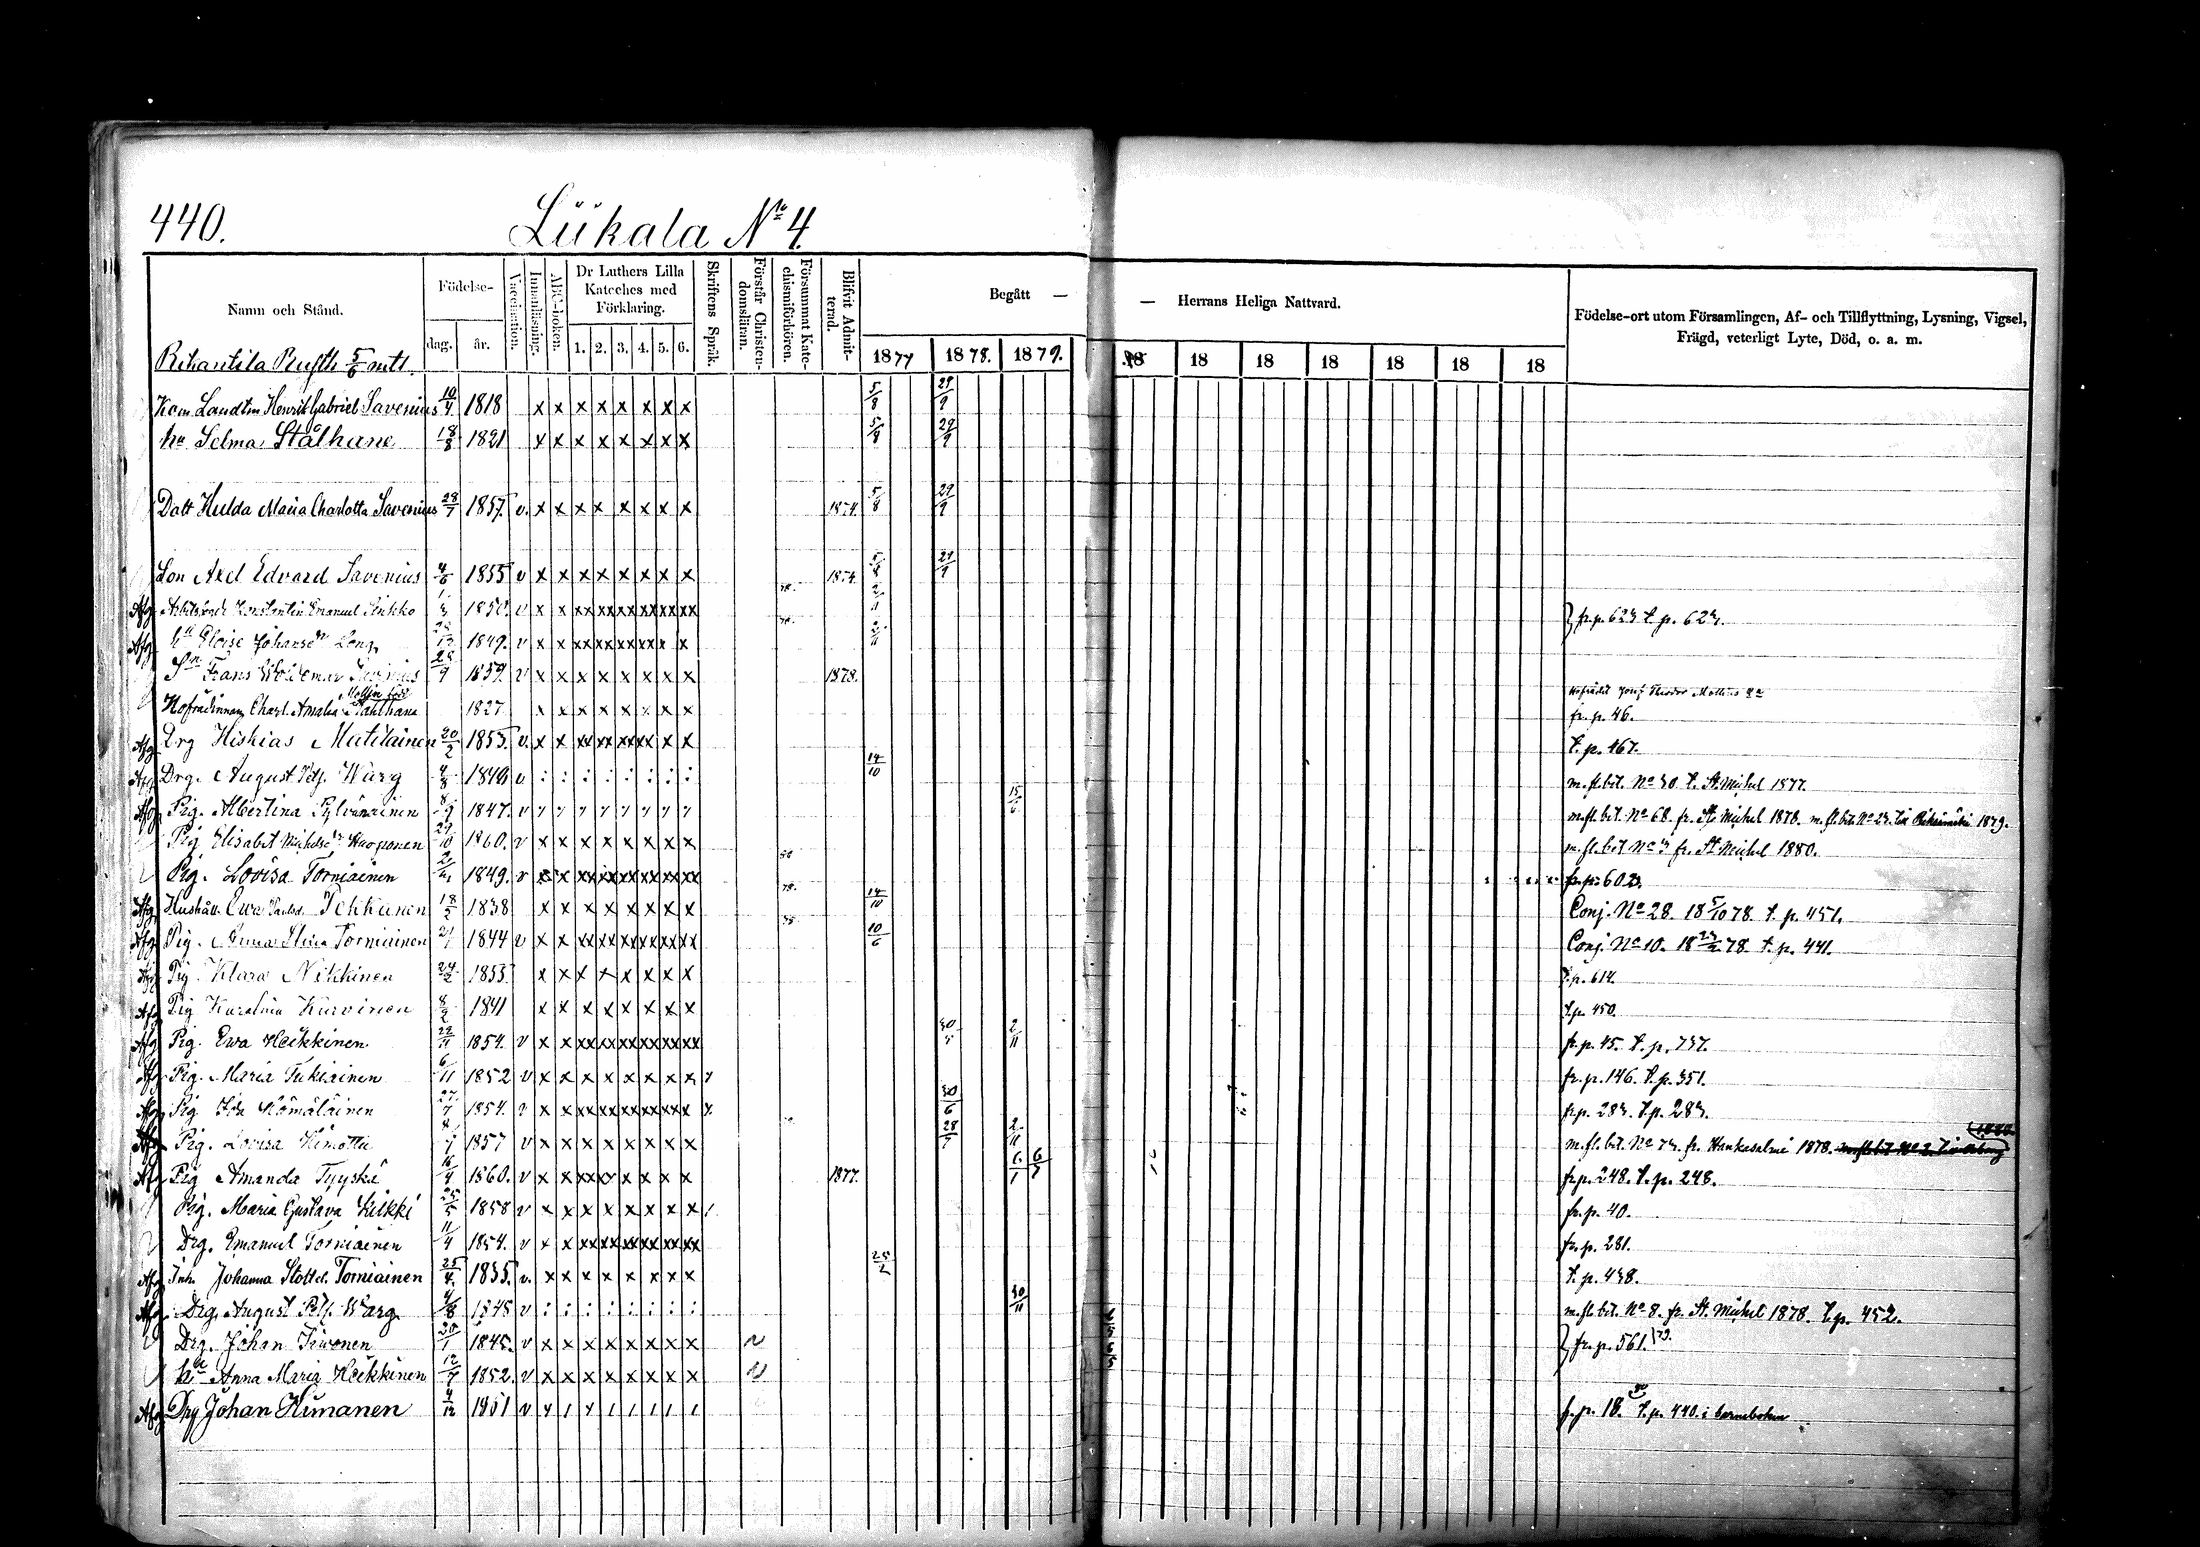 440.
Liikala No 4.
Namn och Stånd.
Födelse-
dag.
år.
Vaccination.
Innanläsning.
ABC-boken.
Dr Luthers Lilla Kateches med Förklaring.
1. 2. 3. 4. 5. 6.
Skriftens Språk.
Förstår Christendomsläran.
Försummat Katechismiförhören.
Blifvit Admitterad.
Begått — — Herrans Heliga Nattvard.
1877 1878. 1879. 18 18 18 18 18 18 18
Födelse-ort utom Församlingen, Af- och Tillflyttning, Lysning, Vigsel, Frägd, veterligt Lyte, Död, o. a. m.
Rikantila Rusth 5/6 mtl.
Kom. Landtm Henrik Gabriel Savenius 10/4 1818 x x x x x x x x 5/8 29/9
hu Selma Stålhane 18/8 1821 x x x x x x x x 5/8 29/9
Dott Hulda Maria Charlotta Savenius 28/7 1857. v. x x x x x x x x 1874. 5/8 29/9
Son Axel Edvard Savenius 4/6 1855 v x x x x x x x x 1874 5/8 29/9
Afg. Konstantin Emanuel 1850. v x x xx xx xx xx xx xx
} fr. p. 623 t. p. 623.
Afg. hu Eloise Johansdr Long 1849. v x x
Sn Frans Woldemar Savenius 28/9 1859. v x x x x x x x x 1878.
Hofrådinnan Charl. Amalia Stålhane Mollin född 1827 fr. p. 46.
Afg Drg Hiskias Matilainen 20/2 1855. v. t. p. 467.
Afg Drg. August Petf. Warg 4/8 1848 v : : : : : : : : 14/10 m. fl. bet. No 30 t. St. Michel 1877.
Afg Pig. Albertina Pylvänäinen 8/9 1847. v 15/6 m. fl. bet. No 68. fr. St. Michel 1878. m. fl. bet. No 23. till 1879.
Pig Elisabet Michelsdr Huoponen 29/10 1860. v x x x x x x x x m. fl. bet No 3 fr. St Michel 1880.
Pig. Lovisa Torniainen 1849. v fr. p. 603.
Afg Hushåll. Ewa Paulsd. Pekkanen 18/2 1838 x x x x x x x x 14/10 Conj. No 28. 18 5/10 78. t. p. 451.
Afg Pig. Anna Stina Torniainen 1844 v x x xx xx xx xx xx xx 10/6 Conj No 10. 18 78. t. p. 441.
Afg Pig. Klara Nikkinen 24/2 1853. x x x x x x x x t. p. 614.
Afg Pig Karolina Kurvinen 8/2 1841 x x x x x x x x t. p. 450.
Afg Pig. Ewa Heikkinen 22/11 1854. v x x xx xx xx xx xx xx 2/11 fr. p. 45. t. p. 737.
Afg Pig. Maria Tukiainen 6/11 1852 v x x x x x x x x fr. p. 146. t. p. 351.
Afg Pig Ida Hämäläinen 27/7 1854. v 30/6 fr. p. 283. t. p. 283.
Afg Pig. Lovisa Himottu 1857 v x x x x x x x x 28/7 2/11 m. fl. bet. No 73. fr. Hankasalmi 1878.
Afg Pig Amanda Tyyskä 16/4 1860. v 1877. fr. p. 248. t. p. 248.
Pig. Maria Gustava Kilkki 25/5 1858 v x x x x x x x x fr. p. 40.
Drg. Emanuel Torniainen 11/4 1854. v x x xx xx xx xx xx xx fr. p. 281.
Afg Inh. Johanna Torniainen 25/4 1835. v. x x x x x x x x 25/2 t. p. 438.
Afg. Drg. August Petf. Warg 4/8 1848 v : : : : : : : : 30/11 m. fl. bet. No 8. fr. St. Michel 1878. t. p. 452.
Drg. Johan Tiwonen 20/1 1845. v x x x x x x x x } fr. p. 561. /79.
hu Anna Maria Heikkinen 12/7 1852. v x x x x x x x x
Afg Drg Johan Himanen 4/12 1851 v fr. p. 18. t. p. 440. i barnboken